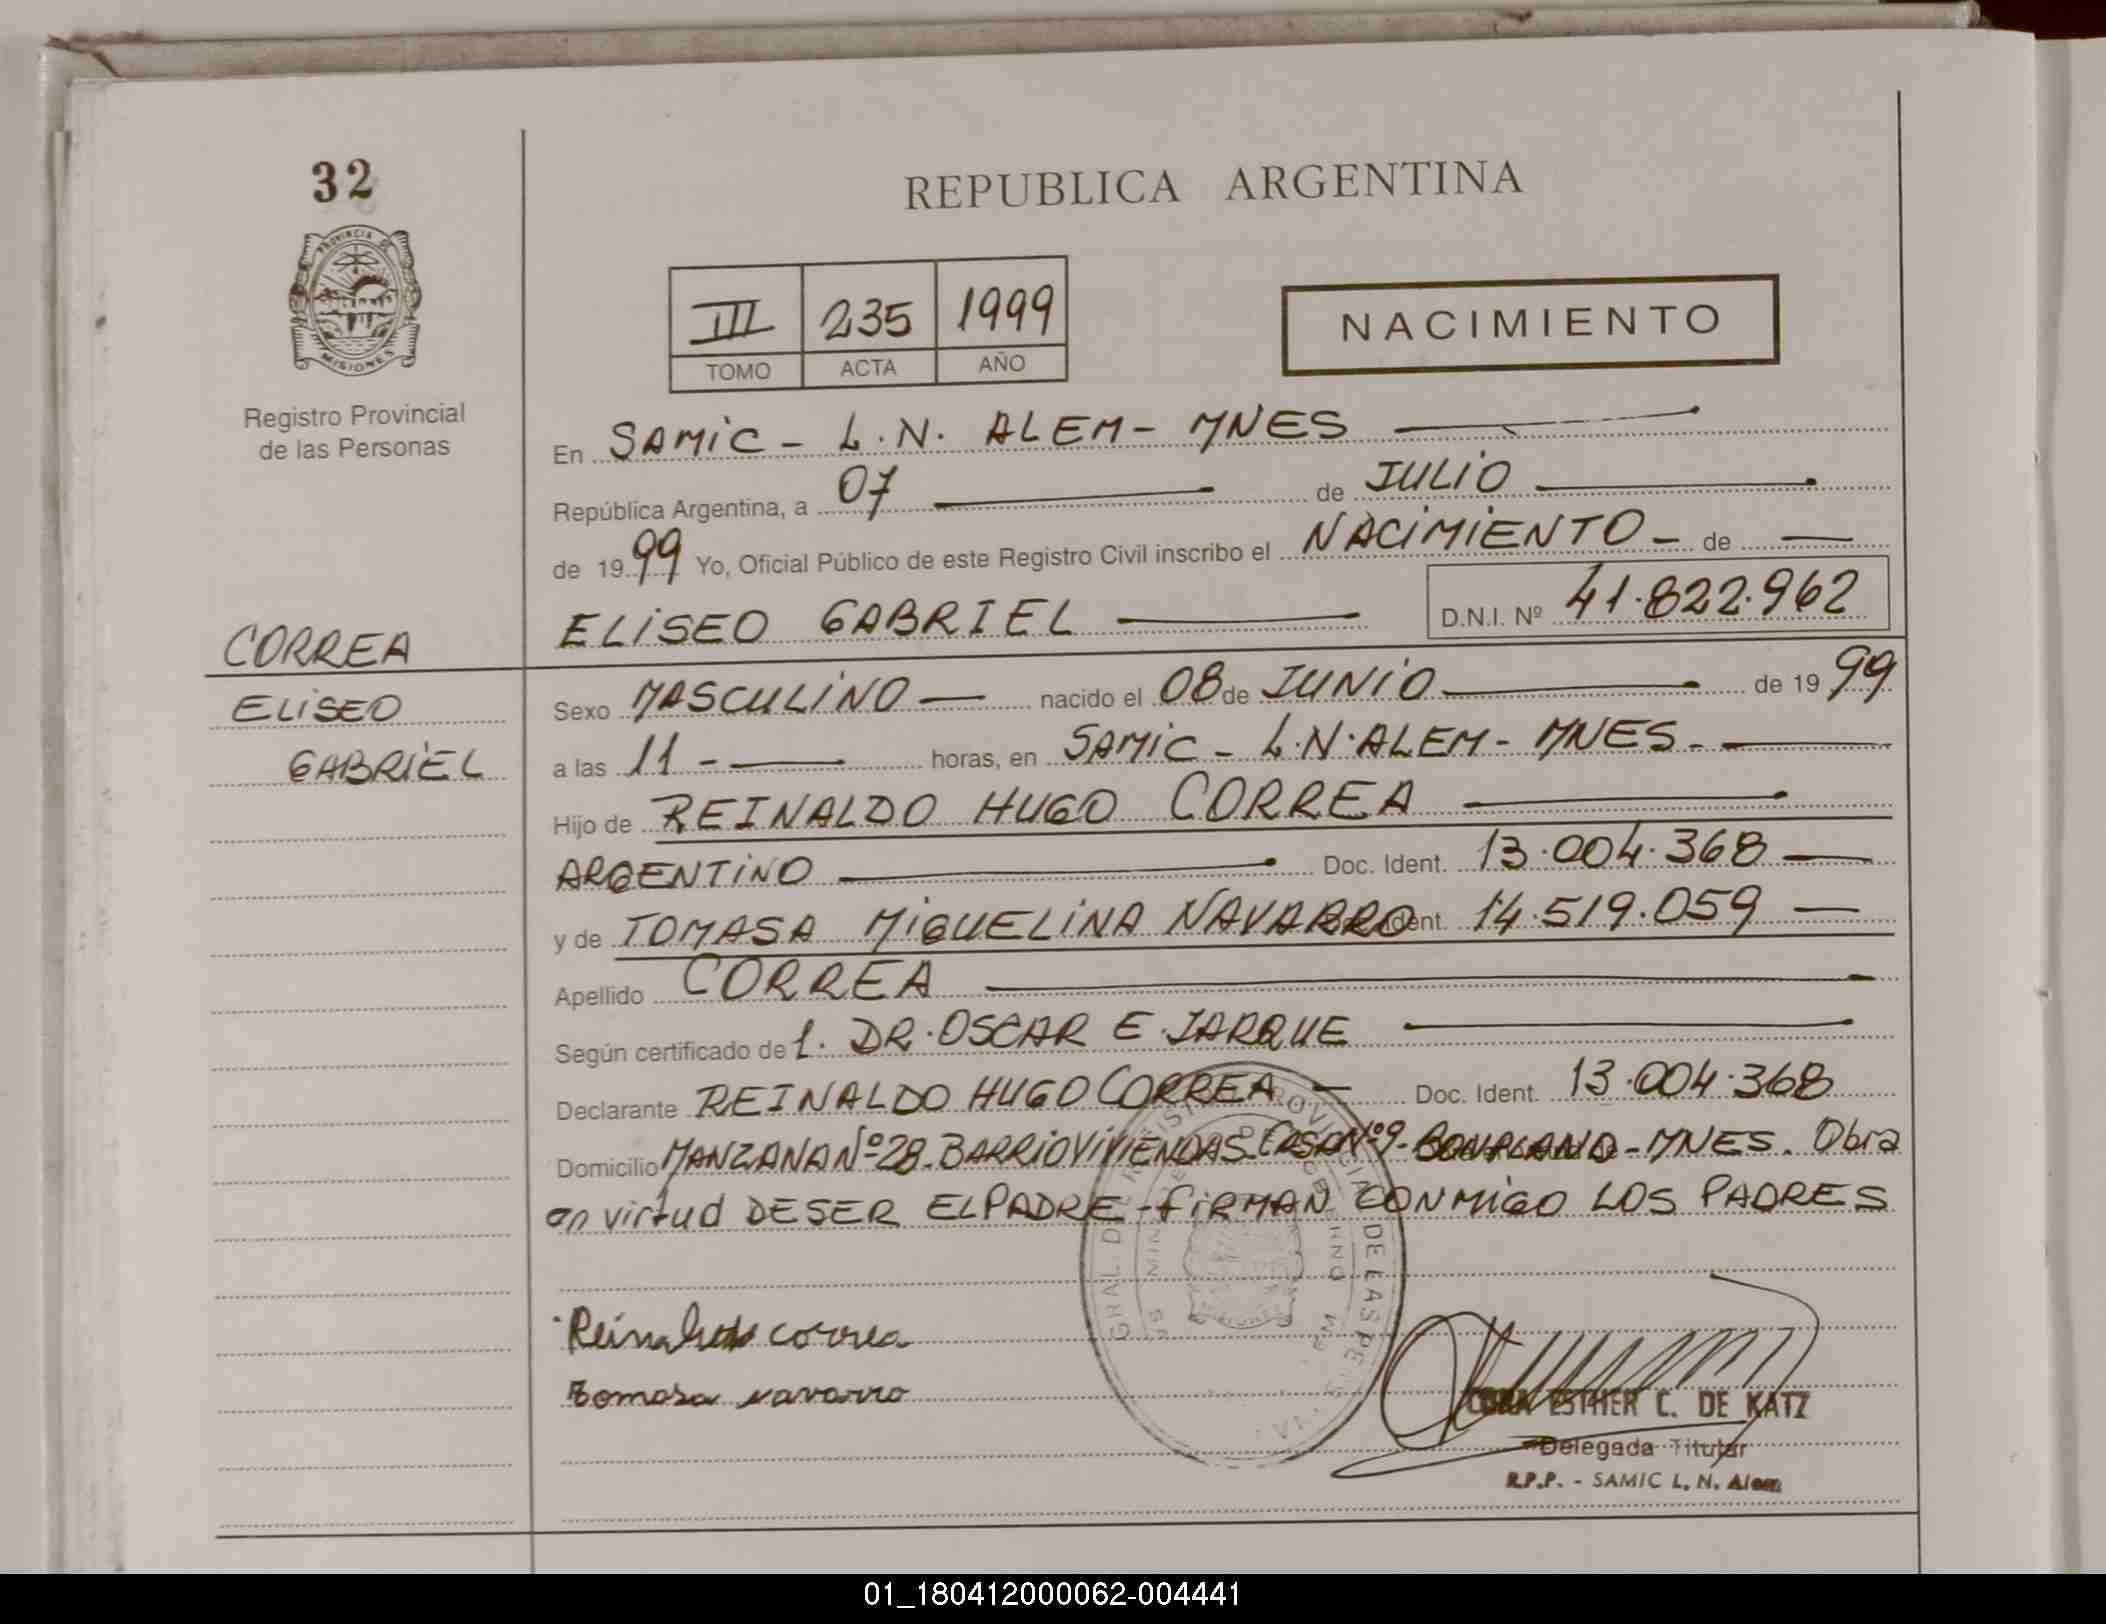 32
PROVINCIA DE
MISIONES
Registro Provincial
de las Personas
CORREA
ELISEO
GABRIEL
REPUBLICA ARGENTINA
III 235 1999
TOMO ACTA AÑO
NACIMIENTO
En SAMIC - L.N. ALEM - MNES
República Argentina, a 07 de JULIO
de 1999 Yo, Oficial Público de este Registro Civil inscribo el NACIMIENTO - de
ELISEO GABRIEL D.N.I. Nº 41.822.962
Sexo MASCULINO nacido el 08 de JUNIO de 1999
a las 11 - horas, en SAMIC - L.N. ALEM - MNES -
Hijo de REINALDO HUGO CORREA
ARGENTINO Doc. Ident. 13.004.368
y de TOMASA MIGUELINA NAVARRO Ident. 14.519.059
Apellido CORREA
Según certificado de 1. DR. OSCAR E. JARQUE
Declarante REINALDO HUGO CORREA Doc. Ident. 13.004.368
Domicilio MANZANA Nº 28 - BARRIO VIVIENDAS - CASA Nº 9 - BONPLAND - MNES. Obra
en virtud DE SER EL PADRE - FIRMAN CONMIGO LOS PADRES
Reinaldo correa
Tomasa navarro
ESTHER C. DE KATZ
Delegada Titular
R.P.P. - SAMIC L. N. Alem
01_180412000062-004441